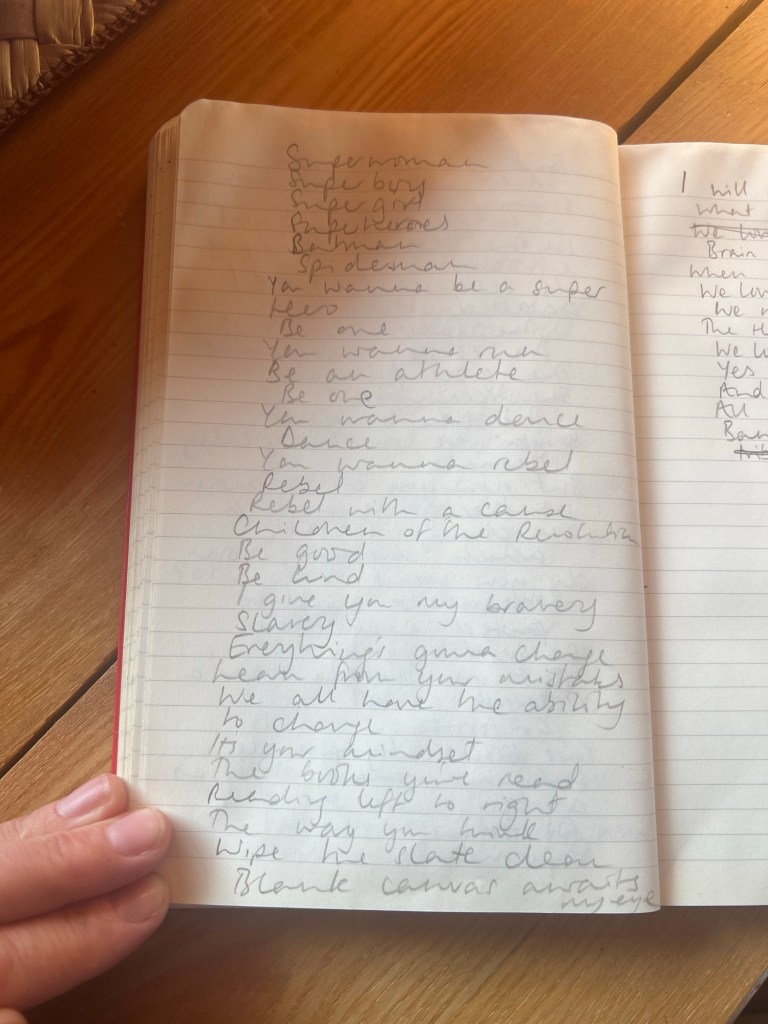 Superwoman
Super boy
Super girl
Superheroes
Batman
Spiderman
You wanna be a super
Hero
Be one
You wanna run
Be an athlete
Be one
You wanna dance
Dance
You wanna rebel
Rebel
Rebel with a cause
Children of the Revolution
Be good
Be kind
I give you my bravery
Slavery
Everything's gonna change
Learn from your mistakes
We all have the ability
to change
It's your mindset
The books you've read
Reading left to right
The way you think
Wipe the slate clean
Blank canvas awaits
my eye
I will
what
Brain
when
We
The
Yes
And
All